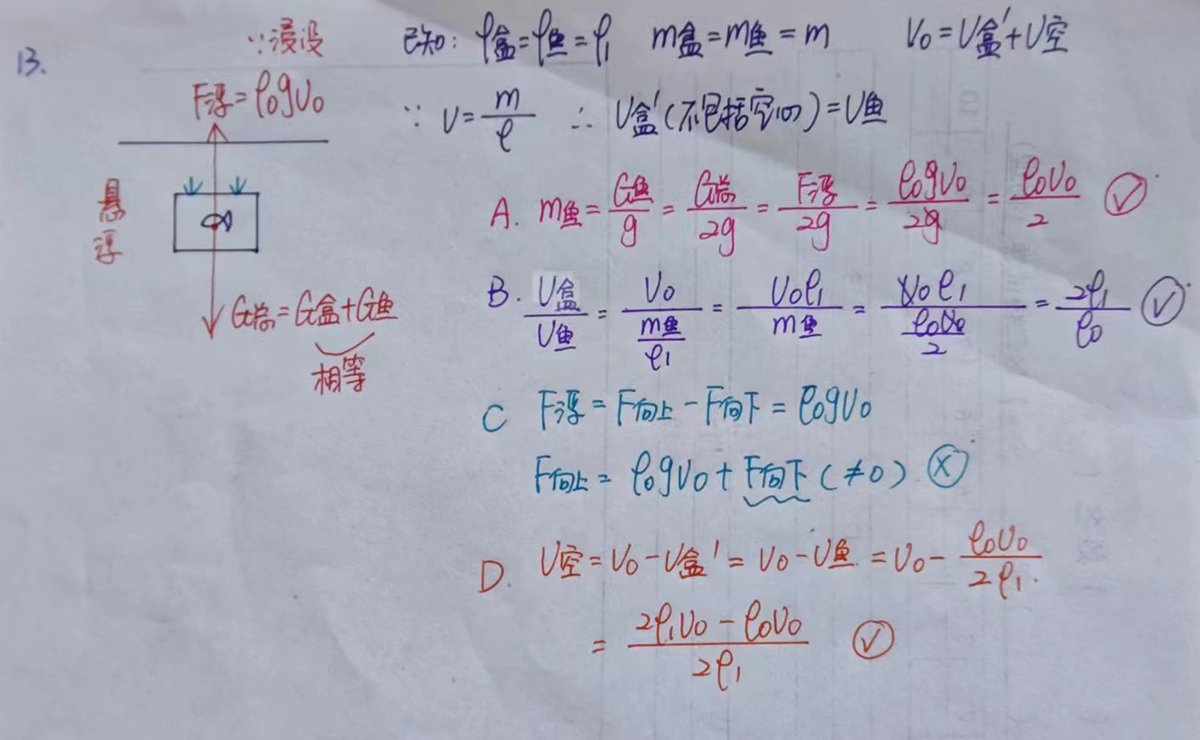 13.
∵浸没
F浮=ρ₀gV₀
悬浮
G总=G盒+G鱼
相等
已知: ρ盒=ρ鱼=ρ₁ m盒=m鱼=m V₀=V盒'+V空
∵ V=m/ρ ∴ V盒'(不包括空心)=V鱼
A. m鱼=G鱼/g=G总/2g=F浮/2g=ρ₀gV₀/2g=ρ₀V₀/2 ✓
B. V盒/V鱼=V₀/(m鱼/ρ₁)=V₀ρ₁/m鱼=V₀ρ₁/(ρ₀V₀/2)=2ρ₁/ρ₀ ✓
C F浮=F向上-F向下=ρ₀gV₀
F向上=ρ₀gV₀+F向下(≠0) ×
D. V空=V₀-V盒'=V₀-V鱼=V₀-ρ₀V₀/2ρ₁.
=(2ρ₁V₀-ρ₀V₀)/2ρ₁ ✓